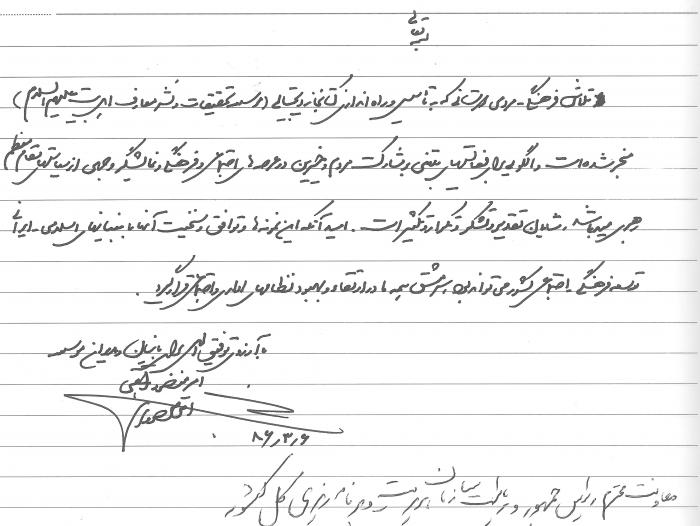 بسمه تعالی
تلاش فرهنگی - مردمی که به تأسیس و راه اندازی کتابخانه دیجیتالی (موسسه تحقیقات و نشر معارف اهل بیت علیهم السلام)
منجر شده است و الگویی برای فعالیتهای مبتنی بر مشارکت مردم و خیرین در عرصه های اجتماعی و فرهنگی و نمایشگر وجهی از سیاستهای مقام معظم
رهبری میباشد، شایان تقدیر و تشکر و تکرار و تکثیر است. امید آنکه این نمونه ها و توافق و سنخیت آنها با بنیانهای اسلامی - ایرانی
توسعه فرهنگی - اجتماعی کشور می تواند سرمشق همه ما در ارتقاء و بهبود نظامهای اداری و اجتماعی قرار گیرد.
با آرزوی توفیق الهی برای بانیان و موسسه
امیر منصور برقعی
۸۶/۳/۶
معاونت محترم رئیس جمهور و ریاست سازمان مدیریت و برنامه ریزی کل کشور